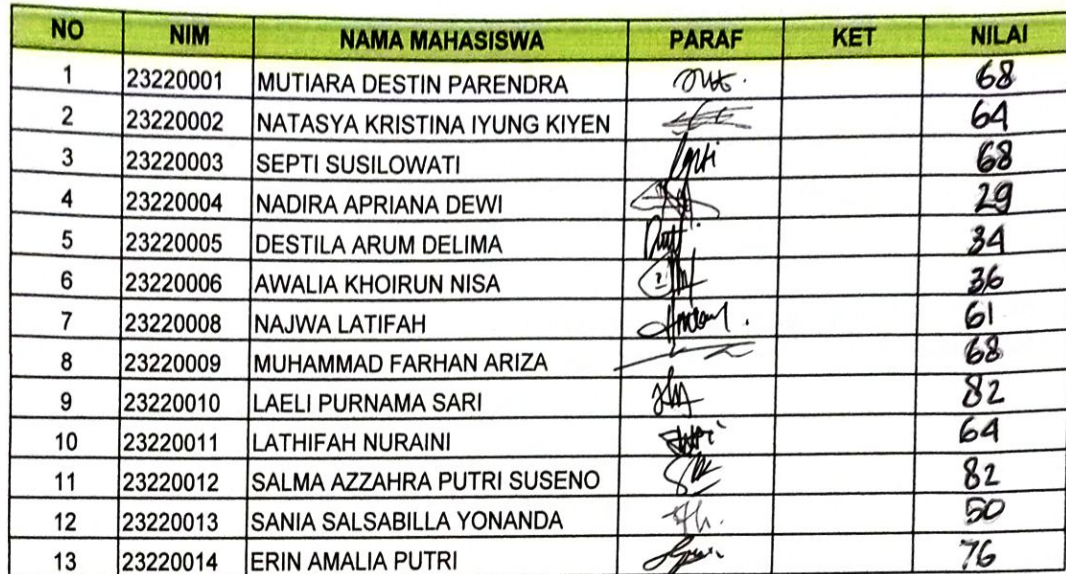 NO NIM NAMA MAHASISWA PARAF KET NILAI
1 23220001 MUTIARA DESTIN PARENDRA 68
2 23220002 NATASYA KRISTINA IYUNG KIYEN 64
3 23220003 SEPTI SUSILOWATI 68
4 23220004 NADIRA APRIANA DEWI 29
5 23220005 DESTILA ARUM DELIMA 34
6 23220006 AWALIA KHOIRUN NISA 36
7 23220008 NAJWA LATIFAH 61
8 23220009 MUHAMMAD FARHAN ARIZA 68
9 23220010 LAELI PURNAMA SARI 82
10 23220011 LATHIFAH NURAINI 64
11 23220012 SALMA AZZAHRA PUTRI SUSENO 82
12 23220013 SANIA SALSABILLA YONANDA 50
13 23220014 ERIN AMALIA PUTRI 76